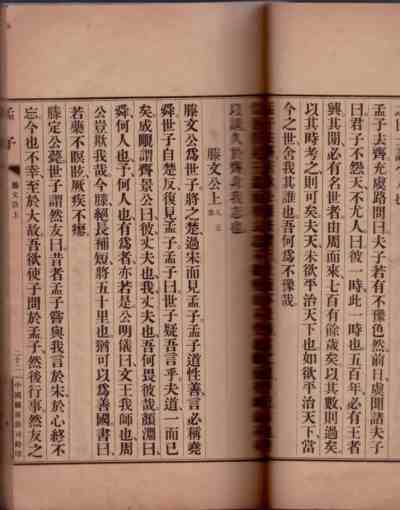 孟子去齊充虞路問曰夫子若有不豫色然前日虞聞諸夫子
曰君子不怨天不尤人曰彼一時此一時也五百年必有王者
興其間必有名世者由周而來七百有餘歲矣以其數則過矣
以其時考之則可矣夫天未欲平治天下也如欲平治天下當
今之世舍我其誰也吾何爲不豫哉
久於齊非我志也
滕文公上
滕文公爲世子將之楚過宋而見孟子孟子道性善言必稱堯
舜世子自楚反復見孟子孟子曰世子疑吾言乎夫道一而已
矣成覵謂齊景公曰彼丈夫也我丈夫也吾何畏彼哉顏淵曰
舜何人也予何人也有爲者亦若是公明儀曰文王我師也周
公豈欺我哉今滕絕長補短將五十里也猶可以爲善國書曰
若藥不瞑眩厥疾不瘳
滕定公薨世子謂然友曰昔者孟子嘗與我言於宋於心終不
忘今也不幸至於大故吾欲使子問於孟子然後行事然友之
孟子
滕文公上